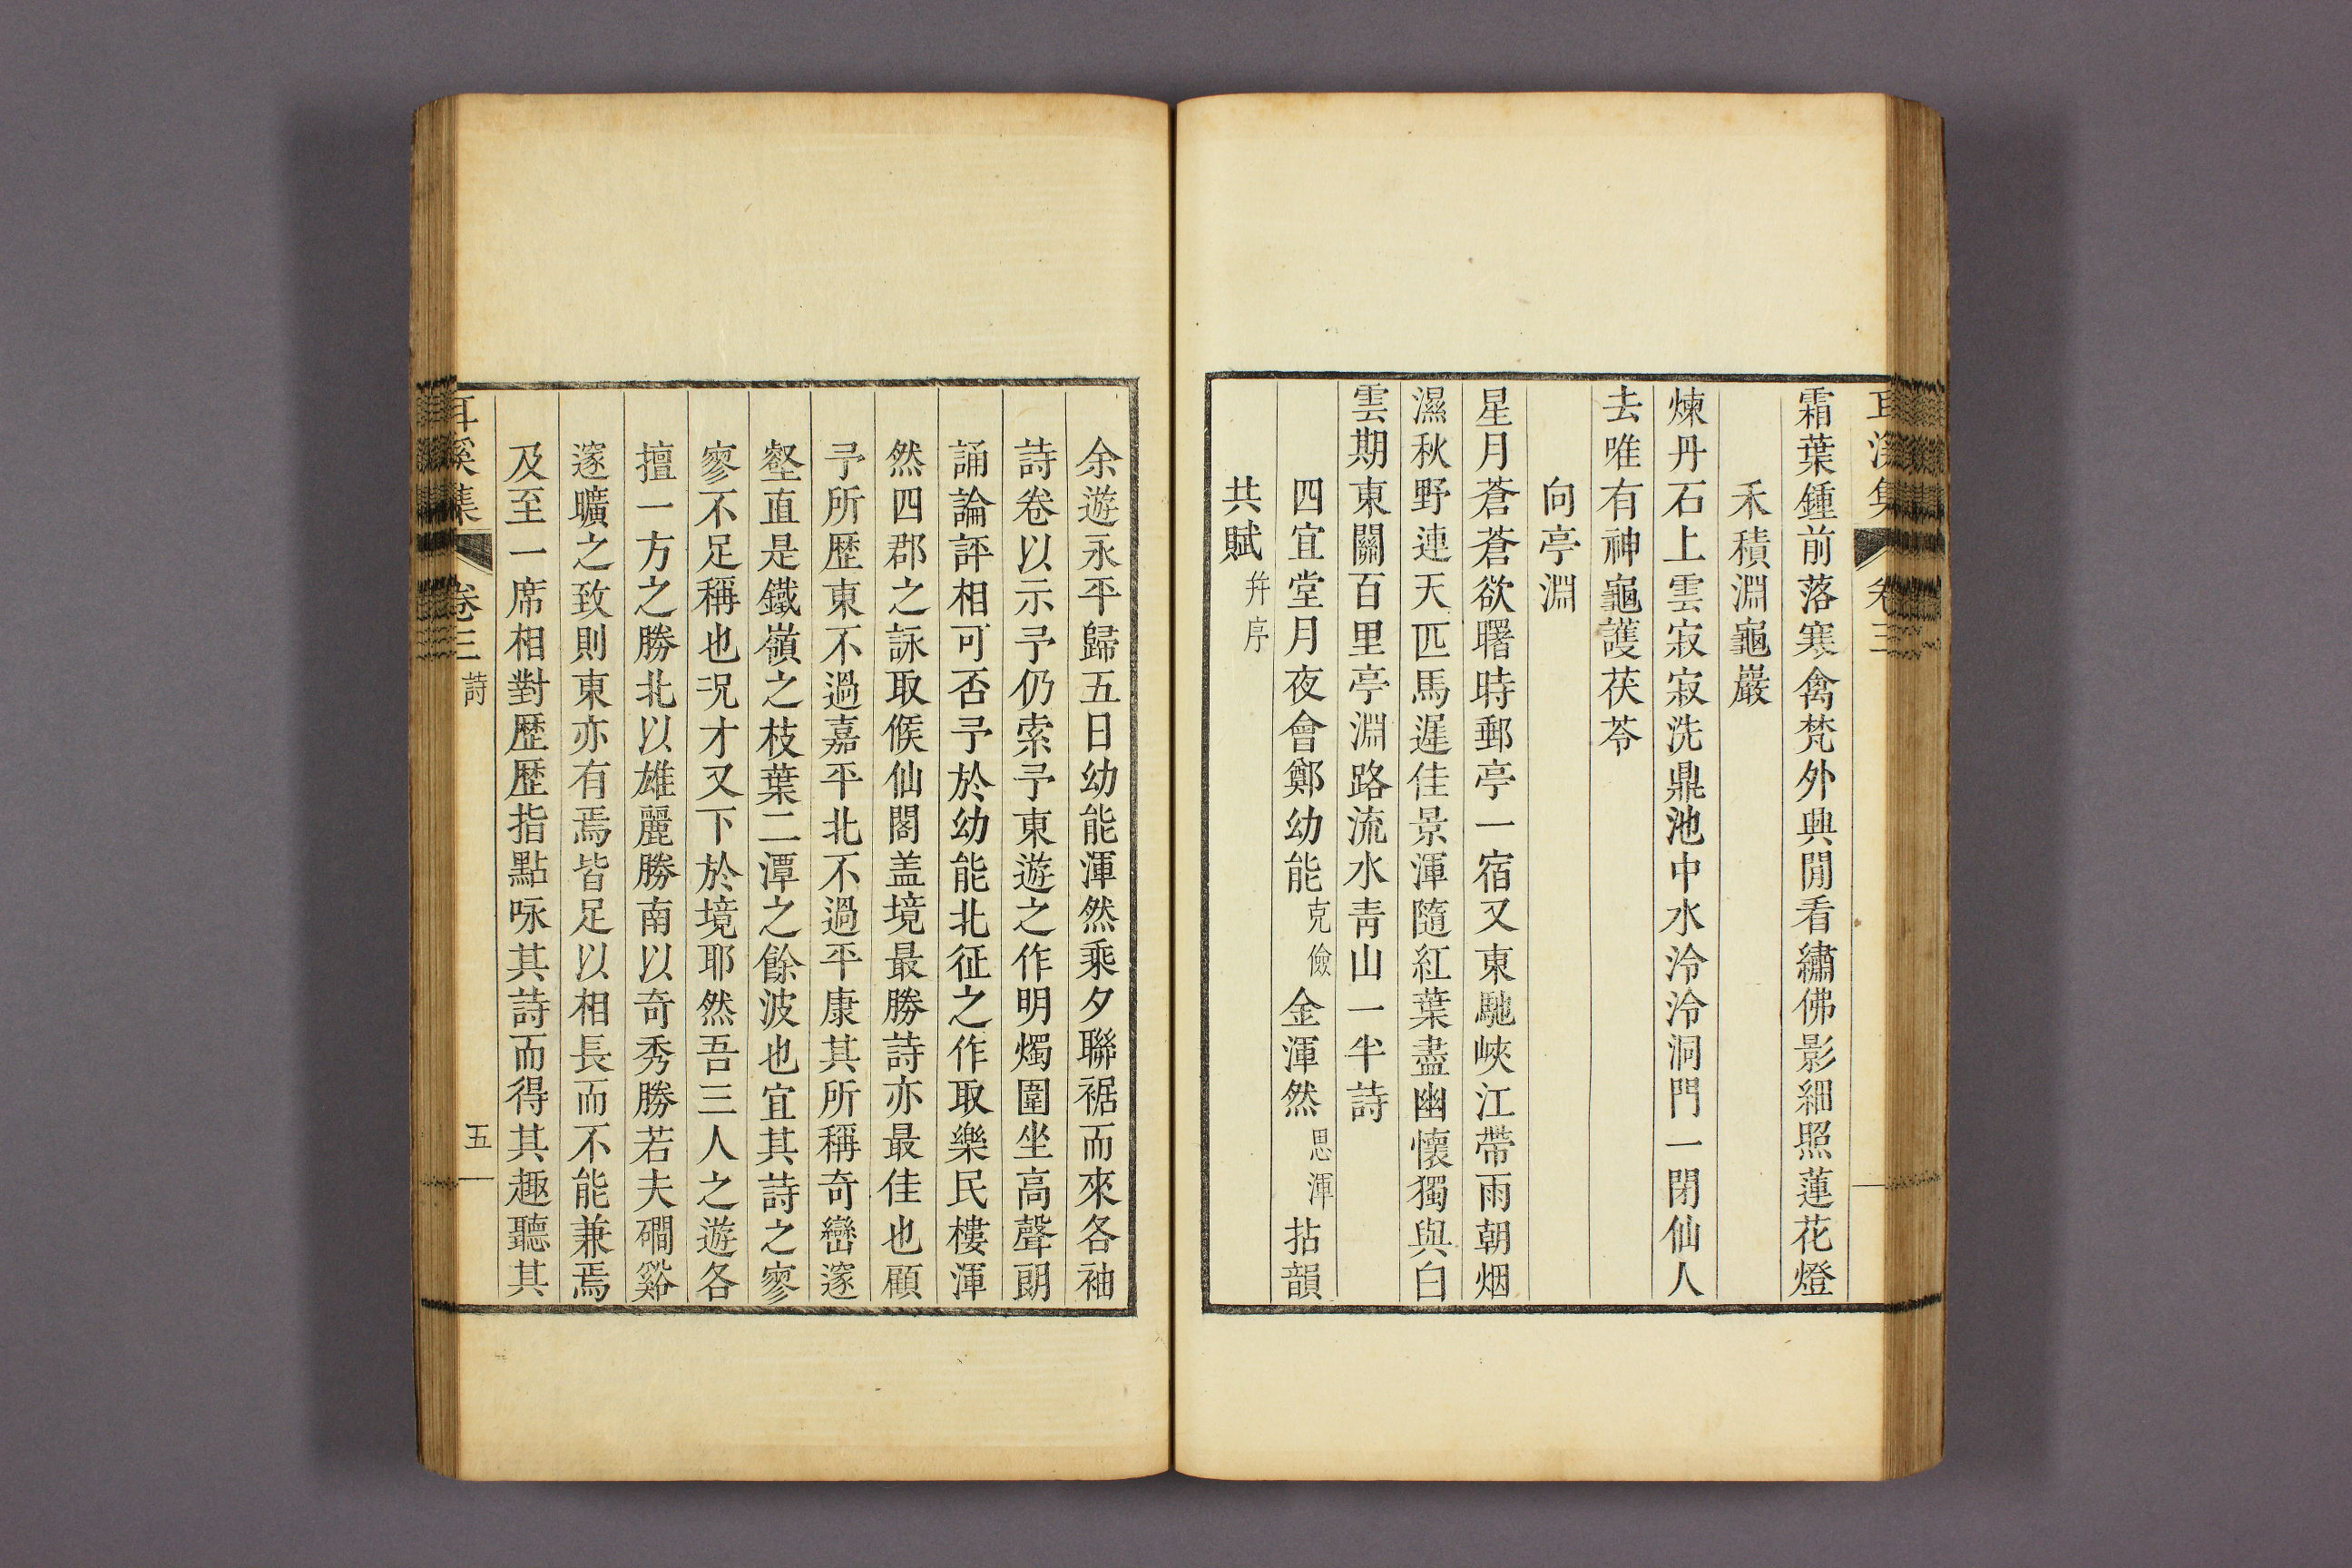 耳溪集 卷三
霜葉鍾前落寒禽梵外興閒看繡佛影細照蓮花燈
禾積淵龜巖
煉丹石上雲寂寂洗鼎池中水泠泠洞門一閉仙人
去唯有神龜護茯苓
向亭淵
星月蒼蒼欲曙時郵亭一宿又東馳峽江帶雨朝烟
濕秋野連天匹馬遲佳景渾隨紅葉盡幽懷獨與白
雲期東關百里亭淵路流水靑山一半詩
四宜堂月夜會鄭幼能克儉金渾然思渾拈韻
共賦幷序
余遊永平歸五日幼能渾然乘夕聯裾而來各袖
詩卷以示予仍索予東遊之作明燭圍坐高聲朗
誦論評相可否予於幼能北征之作取樂民樓渾
然四郡之詠取候仙閣盖境最勝詩亦最佳也顧
予所歷東不過嘉平北不過平康其所稱奇巒邃
壑直是鐵嶺之枝葉二潭之餘波也宜其詩之寥
寥不足稱也况才又下於境耶然吾三人之遊各
擅一方之勝北以雄麗勝南以奇秀勝若夫磵谿
邃曠之致則東亦有焉皆足以相長而不能兼焉
及至一席相對歷歷指點咏其詩而得其趣聽其
耳溪集 卷三 詩 五